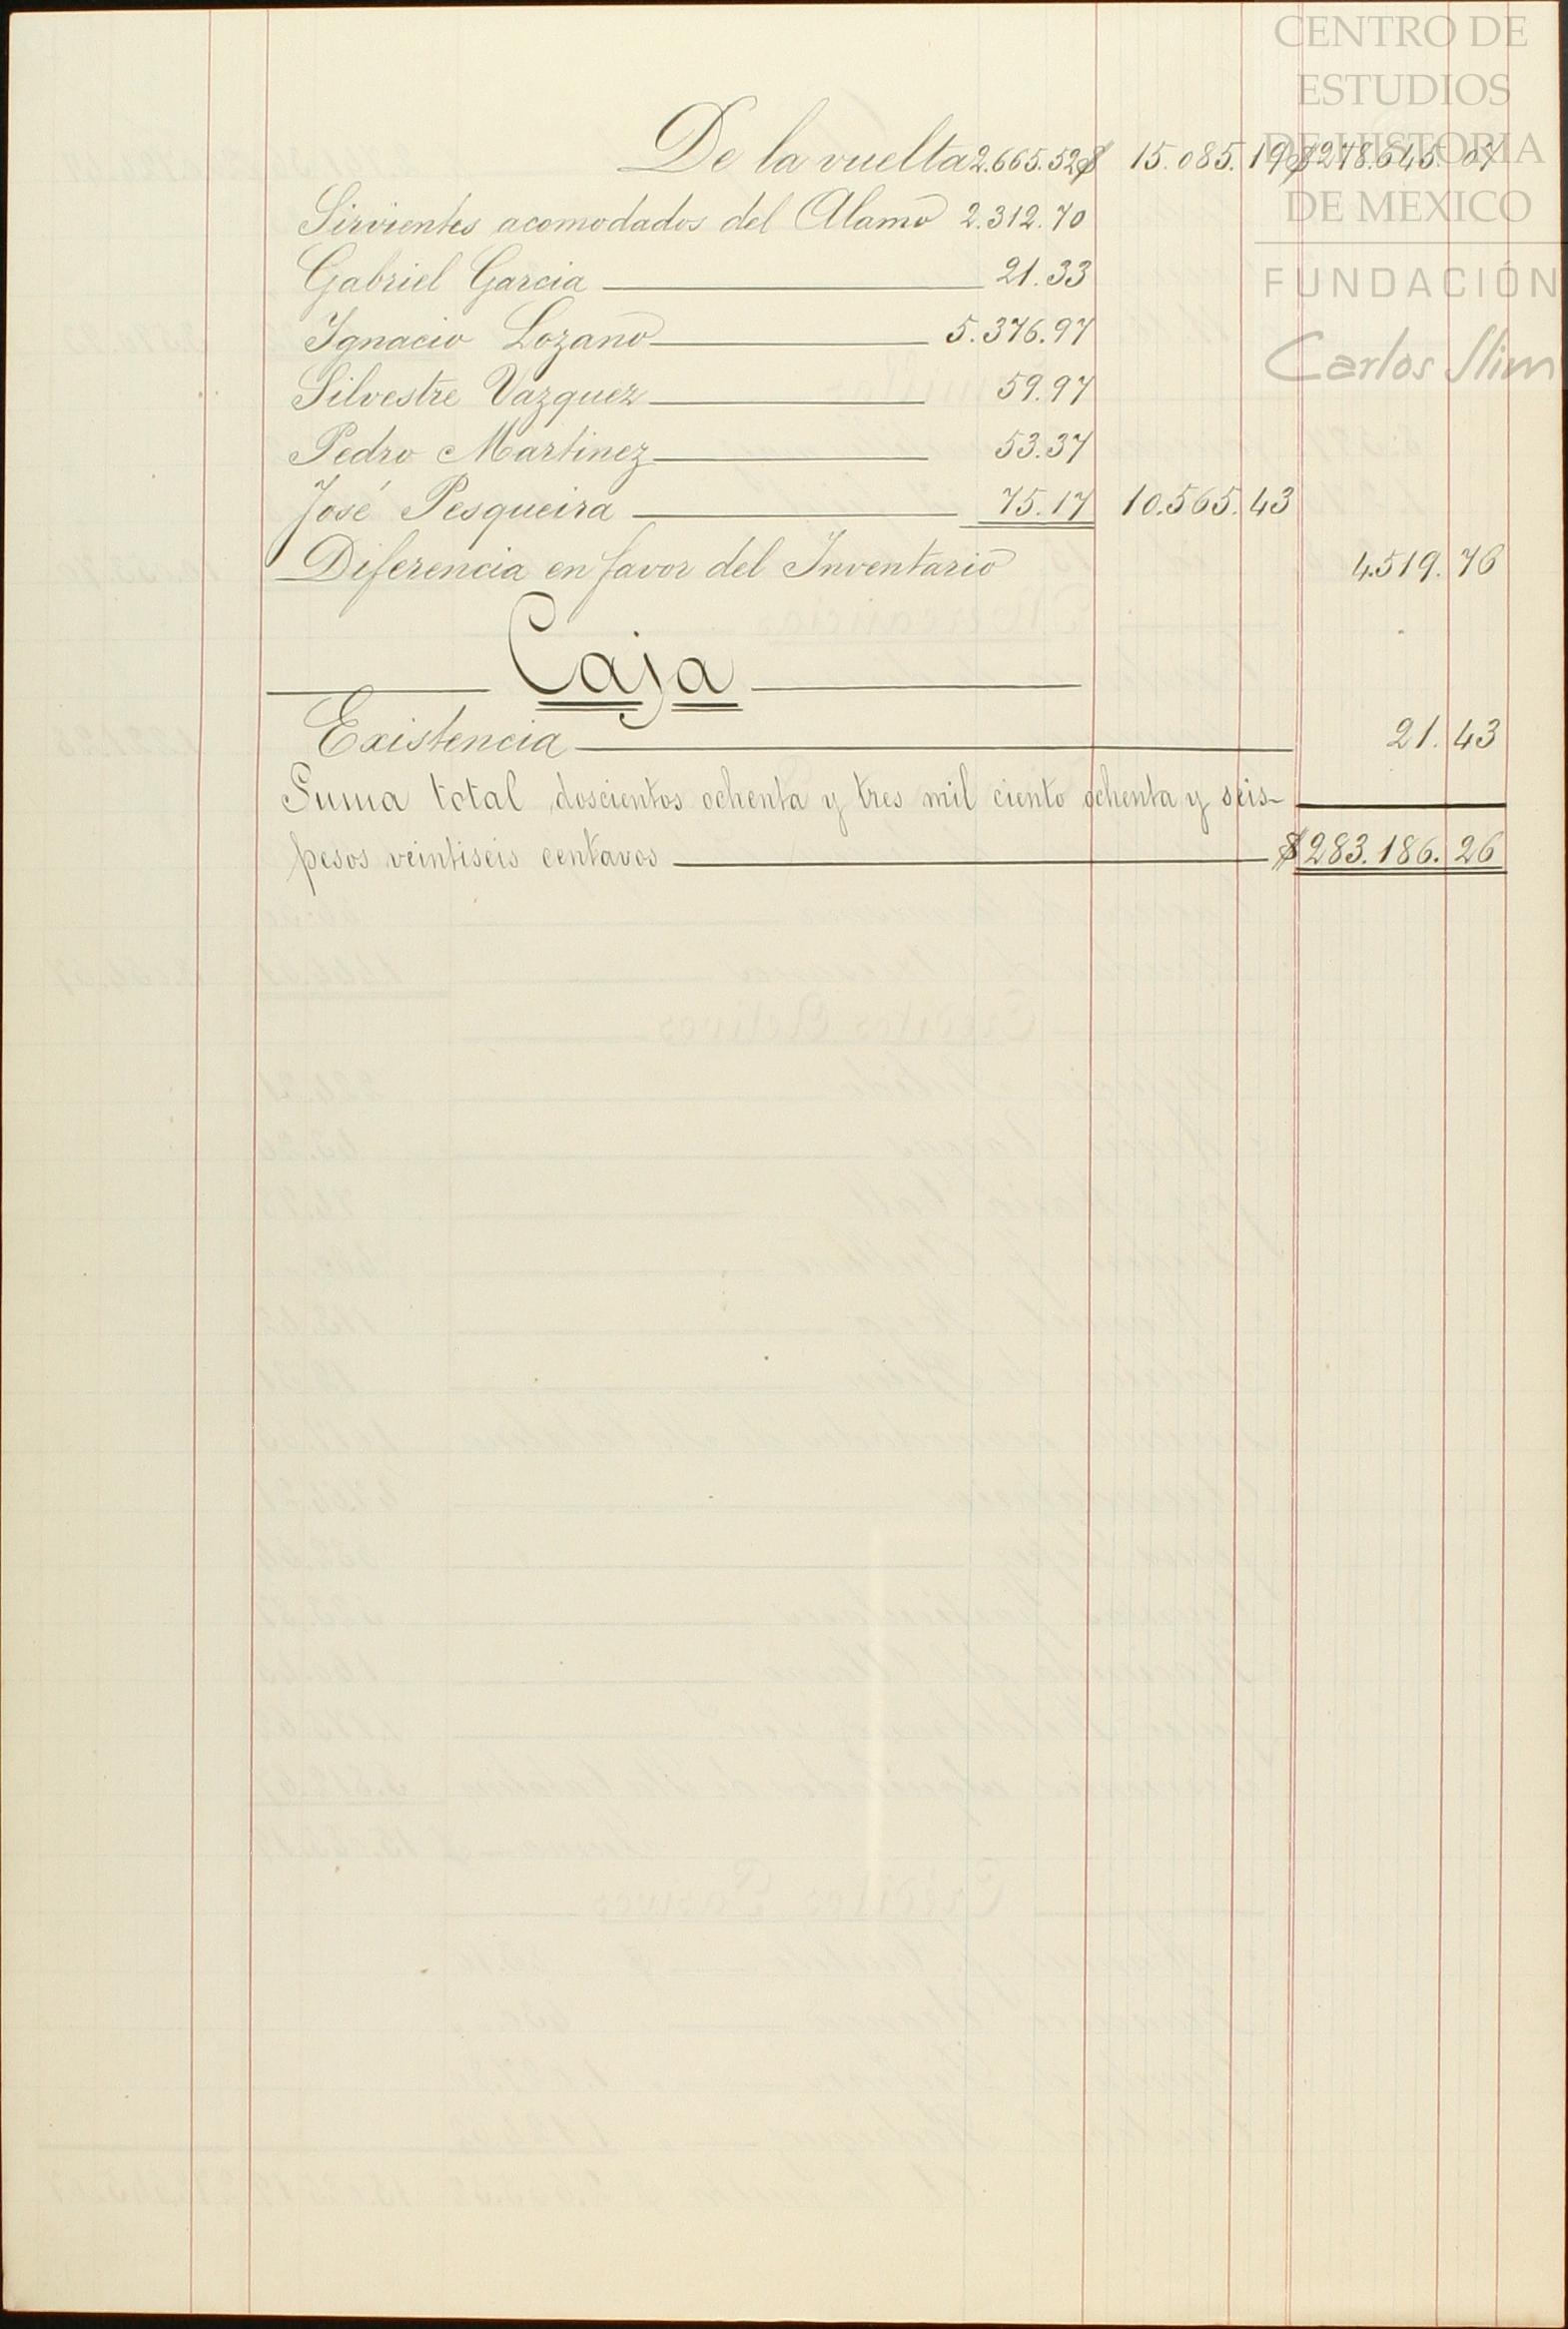 De la vuelta 2.665.52 $ 15.085.19 $ 278.645.07
Sirvientes acomodados del Alamo 2.312.70
Gabriel Garcia 21.33
Ignacio Lozano 5.376.97
Silvestre Vazquez 59.97
Pedro Martinez 53.37
José Pesqueira 75.17 10.565.43
Diferencia en favor del Inventario 4.519.76
Caja
Existencia 21.43
Suma total doscientos ochenta y tres mil ciento ochenta y seis-
pesos veintiseis centavos $283.186.26
CENTRO DE
ESTUDIOS
DE HISTORIA
DE MÉXICO
FUNDACIÓN
Carlos Slim